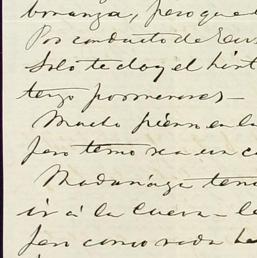 bonanza, pero que e
Por conducto de
Solo te doy el
tengo pormenores —
Mucho pienso en la
pero temo sea un c
Madariaga tení
ir á la Cueva — le
pero como nada he